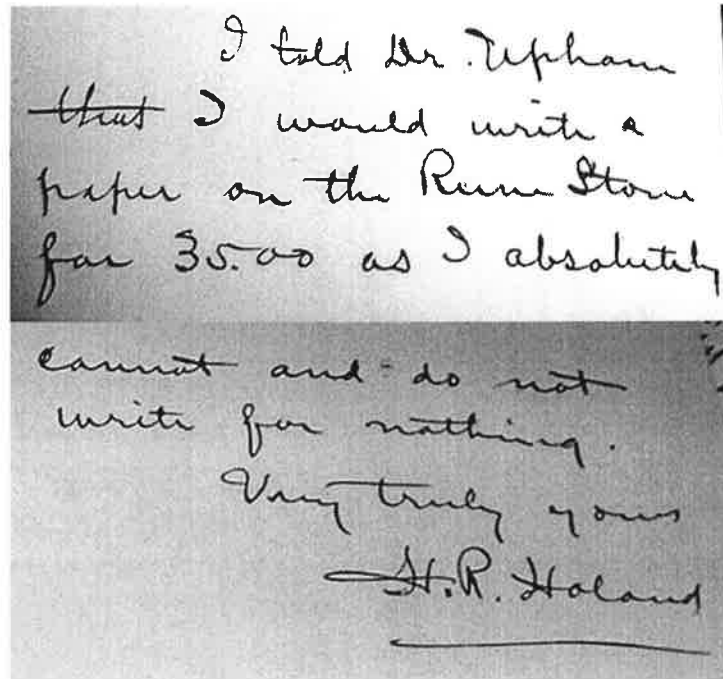 I told Dr. Upham
that I would write a
paper on the Rune Stone
for 35.00 as I absolutely
cannot and do not
write for nothing.
Very truly yours
H. R. Holand